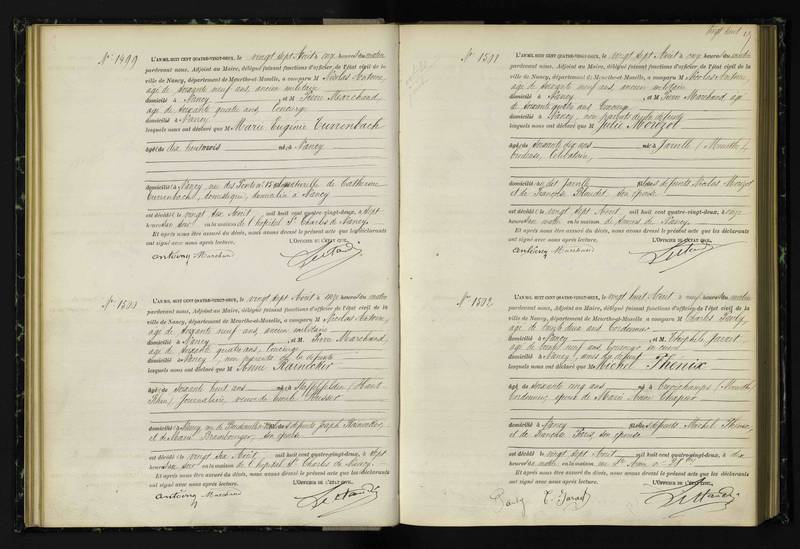 N° 1499
L'AN MIL HUIT CENT QUATRE-VINGT-DEUX, le vingt sept Août à onze heures du matin
pardevant nous, Adjoint au Maire, délégué faisant fonctions d'officier de l'état civil de la
ville de Nancy, département de Meurthe-et-Moselle, a comparu M Nicolas Antoine,
âgé de soixante neuf ans, ancien militaire
domicilié à Nancy, et M Pierre Marchand,
âgé de soixante quatre ans, concierge
domicilié à Nancy
lesquels nous ont déclaré que M Marie Eugénie Turrenbach
âgé de dix huit mois né à Nancy
domicilié à Nancy, rue des Ponts n° 15 fille naturelle de Catherine
Turrenbach, domestique, domiciliée à Nancy
est décédé le vingt six Août mil huit cent quatre-vingt-deux, à sept
heures du soir en la maison de l'hôpital St Charles de Nancy.
Et après nous être assuré du décès, nous avons dressé le présent acte que les déclarants
ont signé avec nous après lecture.
L'OFFICIER DE L'ÉTAT CIVIL,
antoine Marchand
N° 1500
L'AN MIL HUIT CENT QUATRE-VINGT-DEUX, le vingt sept Août à onze heures du matin
pardevant nous, Adjoint au Maire, délégué faisant fonctions d'officier de l'état civil de la
ville de Nancy, département de Meurthe-et-Moselle, a comparu M Nicolas Antoine,
âgé de soixante neuf ans, ancien militaire
domicilié à Nancy, et M Pierre Marchand,
âgé de soixante quatre ans, concierge
domicilié à Nancy, non parents de la défunte
lesquels nous ont déclaré que M Anne
âgé de soixante huit ans né à (Haut
Rhin) Journalière, veuve de
domicilié à Nancy, rue de défunts Joseph
et de son épouse
est décédé le vingt six Août mil huit cent quatre-vingt-deux, à sept
heures du soir en la maison de l'hôpital St Charles de Nancy.
Et après nous être assuré du décès, nous avons dressé le présent acte que les déclarants
ont signé avec nous après lecture.
L'OFFICIER DE L'ÉTAT CIVIL,
antoine Marchand
N° 1501
L'AN MIL HUIT CENT QUATRE-VINGT-DEUX, le vingt sept Août à onze heures du matin
pardevant nous, Adjoint au Maire, délégué faisant fonctions d'officier de l'état civil de la
ville de Nancy, département de Meurthe-et-Moselle, a comparu M Nicolas Antoine,
âgé de soixante neuf ans, ancien militaire
domicilié à Nancy, et M Pierre Marchand, âgé
de soixante quatre ans, concierge
domicilié à Nancy, non parents de la défunte
lesquels nous ont déclaré que M Julie Morizot
âgé de soixante dix ans né à Jarville (Meurthe),
brodeuse, célibataire,
domicilié audit Jarville fille de défunts Nicolas Morizot
et de Françoise son épouse
est décédé le vingt sept Août mil huit cent quatre-vingt-deux, à onze
heures du matin en la maison de secours de Nancy.
Et après nous être assuré du décès, nous avons dressé le présent acte que les déclarants
ont signé avec nous après lecture.
L'OFFICIER DE L'ÉTAT CIVIL,
antoine Marchand
N° 1502
L'AN MIL HUIT CENT QUATRE-VINGT-DEUX, le vingt huit Août à neuf heures du matin
pardevant nous, Adjoint au Maire, délégué faisant fonctions d'officier de l'état civil de la
ville de Nancy, département de Meurthe-et-Moselle, a comparu M Charles
âgé de trente deux ans, cordonnier
domicilié à Nancy, et M Théophile
âgé de neuf ans,
domicilié à Nancy, amis du défunt
lesquels nous ont déclaré que M Michel Thenix
âgé de soixante cinq ans né à (Meurthe)
Cordonnier, époux de Marie Anne Chapier
domicilié à Nancy fils de défunts Michel Thenix
et de son épouse
est décédé le vingt sept Août mil huit cent quatre-vingt-deux, à dix
heures du matin en la maison rue St
Et après nous être assuré du décès, nous avons dressé le présent acte que les déclarants
ont signé avec nous après lecture.
L'OFFICIER DE L'ÉTAT CIVIL,